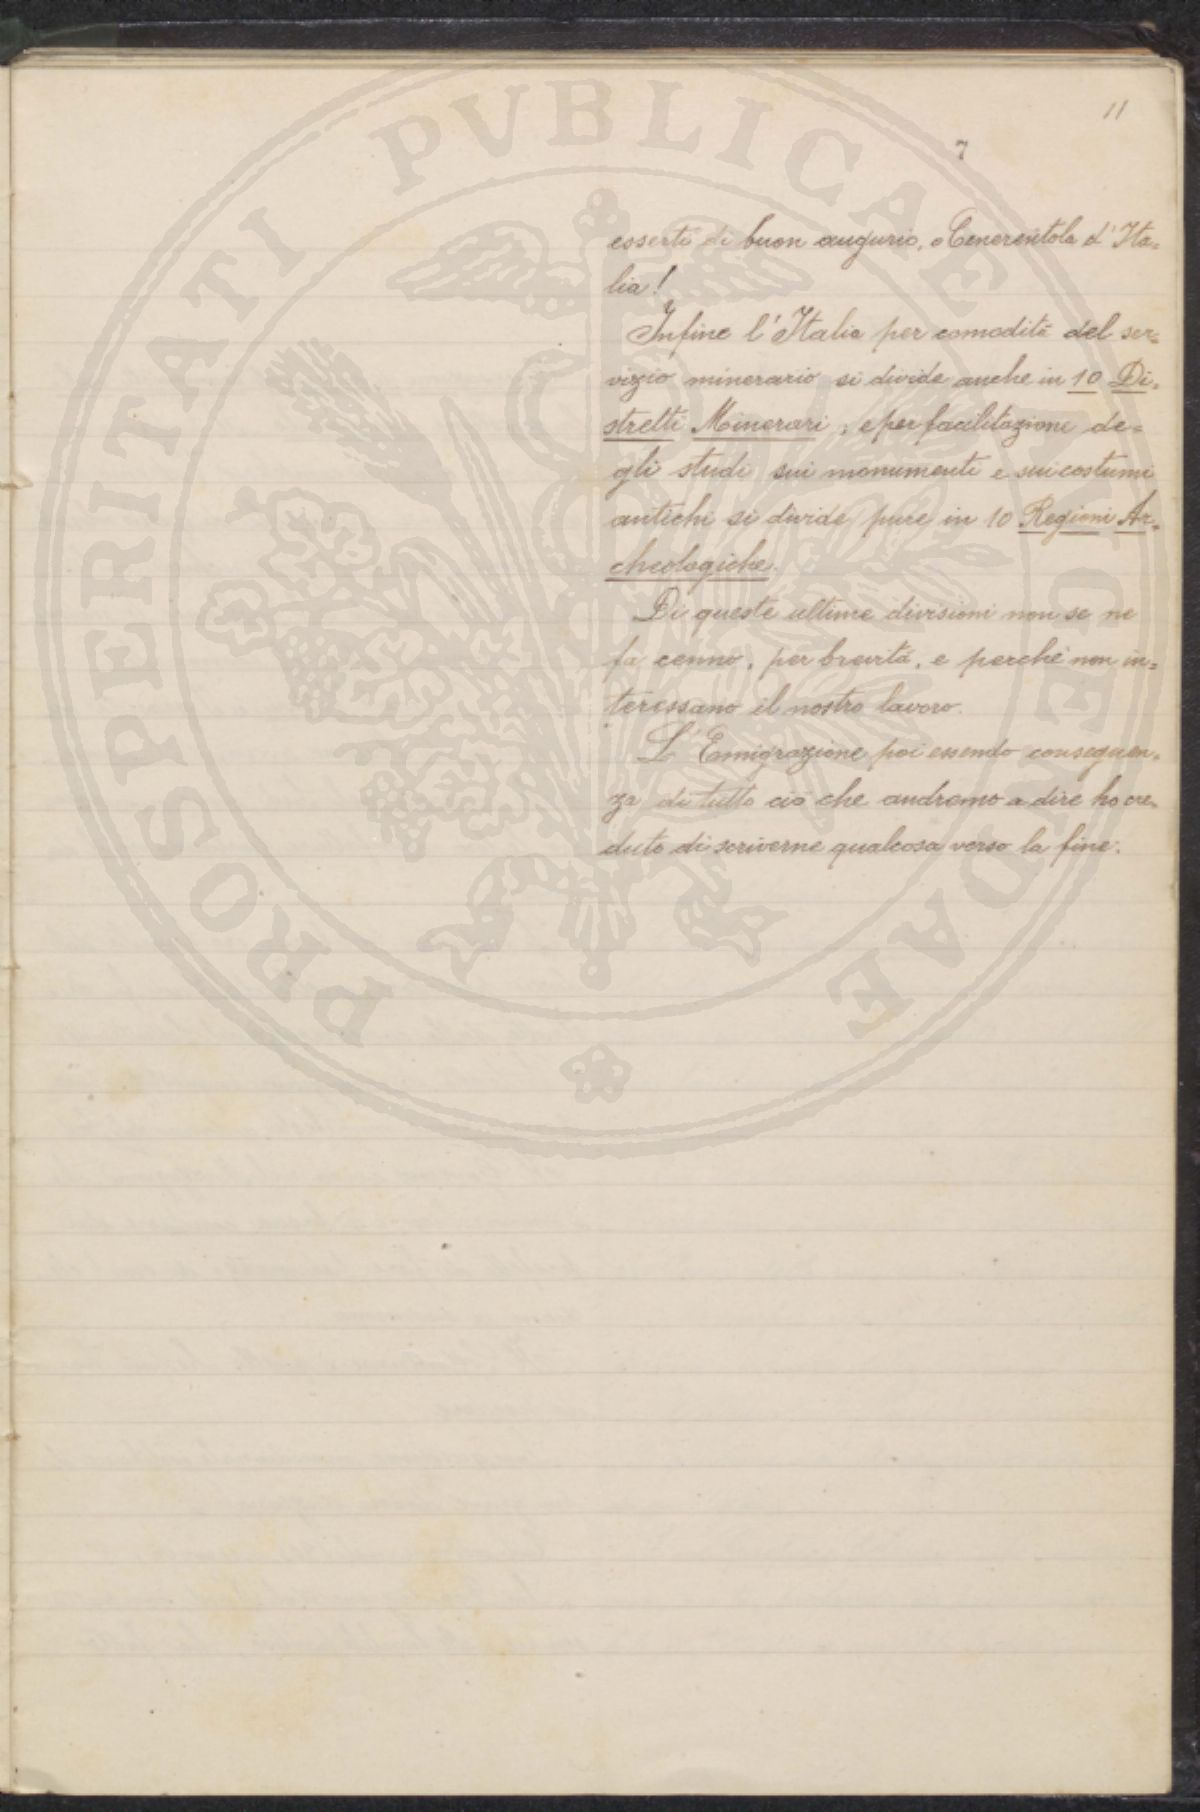 11
7
esserti di buon augurio, o Cenerentola d'Ita=
lia!
Infine l'Italia per comodità del ser=
vizio minerario si divide anche in 10 Di=
stretti Minerari, e per facilitazione de=
gli studi sui monumenti e sui costumi
antichi si divide pure in 10 Regioni Ar=
cheologiche.
Di queste ultime divisioni non se ne
fa cenno, per brevità, e perchè non in=
teressano il nostro lavoro.
L'Emigrazione poi essendo conseguen=
za di tutto ciò che andremo a dire ho cre=
duto di scriverne qualcosa verso la fine.
PROSPERITATI PVBLICAE AVGENDAE